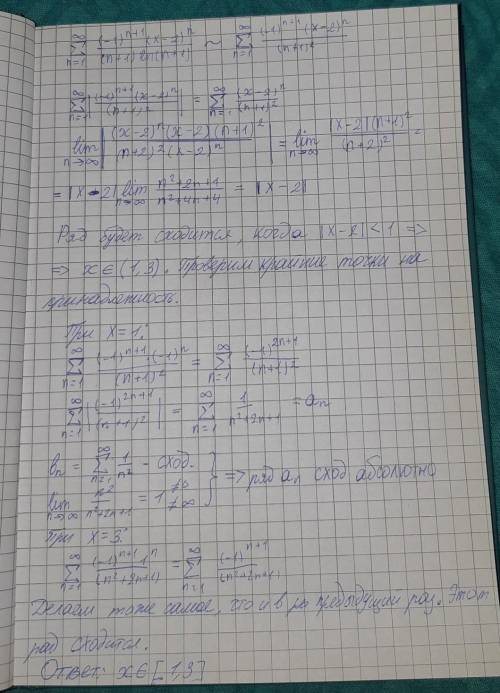 ∑_{n=1}^{∞} (-1)^{n+1}(x-2)^n / (n+1)ln(n+1) ~ ∑_{n=1}^{∞} (-1)^{n+1}(x-2)^n / (n+1)^2
∑_{n=1}^{∞} |(-1)^{n+1}(x-2)^n / (n+1)^2| = ∑_{n=1}^{∞} (x-2)^n / (n+1)^2
lim_{n→∞} |(x-2)^n (x-2)(n+1)^2 / (n+2)^2 (x-2)^n| = lim_{n→∞} |x-2|(n+1)^2 / (n+2)^2 =
= |x-2| lim_{n→∞} n^2+2n+1 / n^2+4n+4 = |x-2|
Ряд будет сходится, когда |x-2|<1 =>
=> x∈(1,3). Проверим крайние точки на
принадлежность.
При x=1:
∑_{n=1}^{∞} (-1)^{n+1}·(-1)^n / (n+1)^2 = ∑_{n=1}^{∞} (-1)^{2n+1} / (n+1)^2
∑_{n=1}^{∞} |(-1)^{2n+1} / (n+1)^2| = ∑_{n=1}^{∞} 1 / n^2+2n+1 = a_n
b_n = ∑_{n=1}^{∞} 1/n^2 - сход.
lim_{n→∞} n^2 / n^2+2n+1 = 1 ≠0 ≠∞ } => ряд a_n сход абсолютно
При x=3:
∑_{n=1}^{∞} (-1)^{n+1} 1^n / (n^2+2n+1) = ∑_{n=1}^{∞} (-1)^{n+1} / (n^2+2n+1)
Делаем тоже самое, что и в предыдущий раз. Этот
ряд сходится.
Ответ: x∈[1,3]